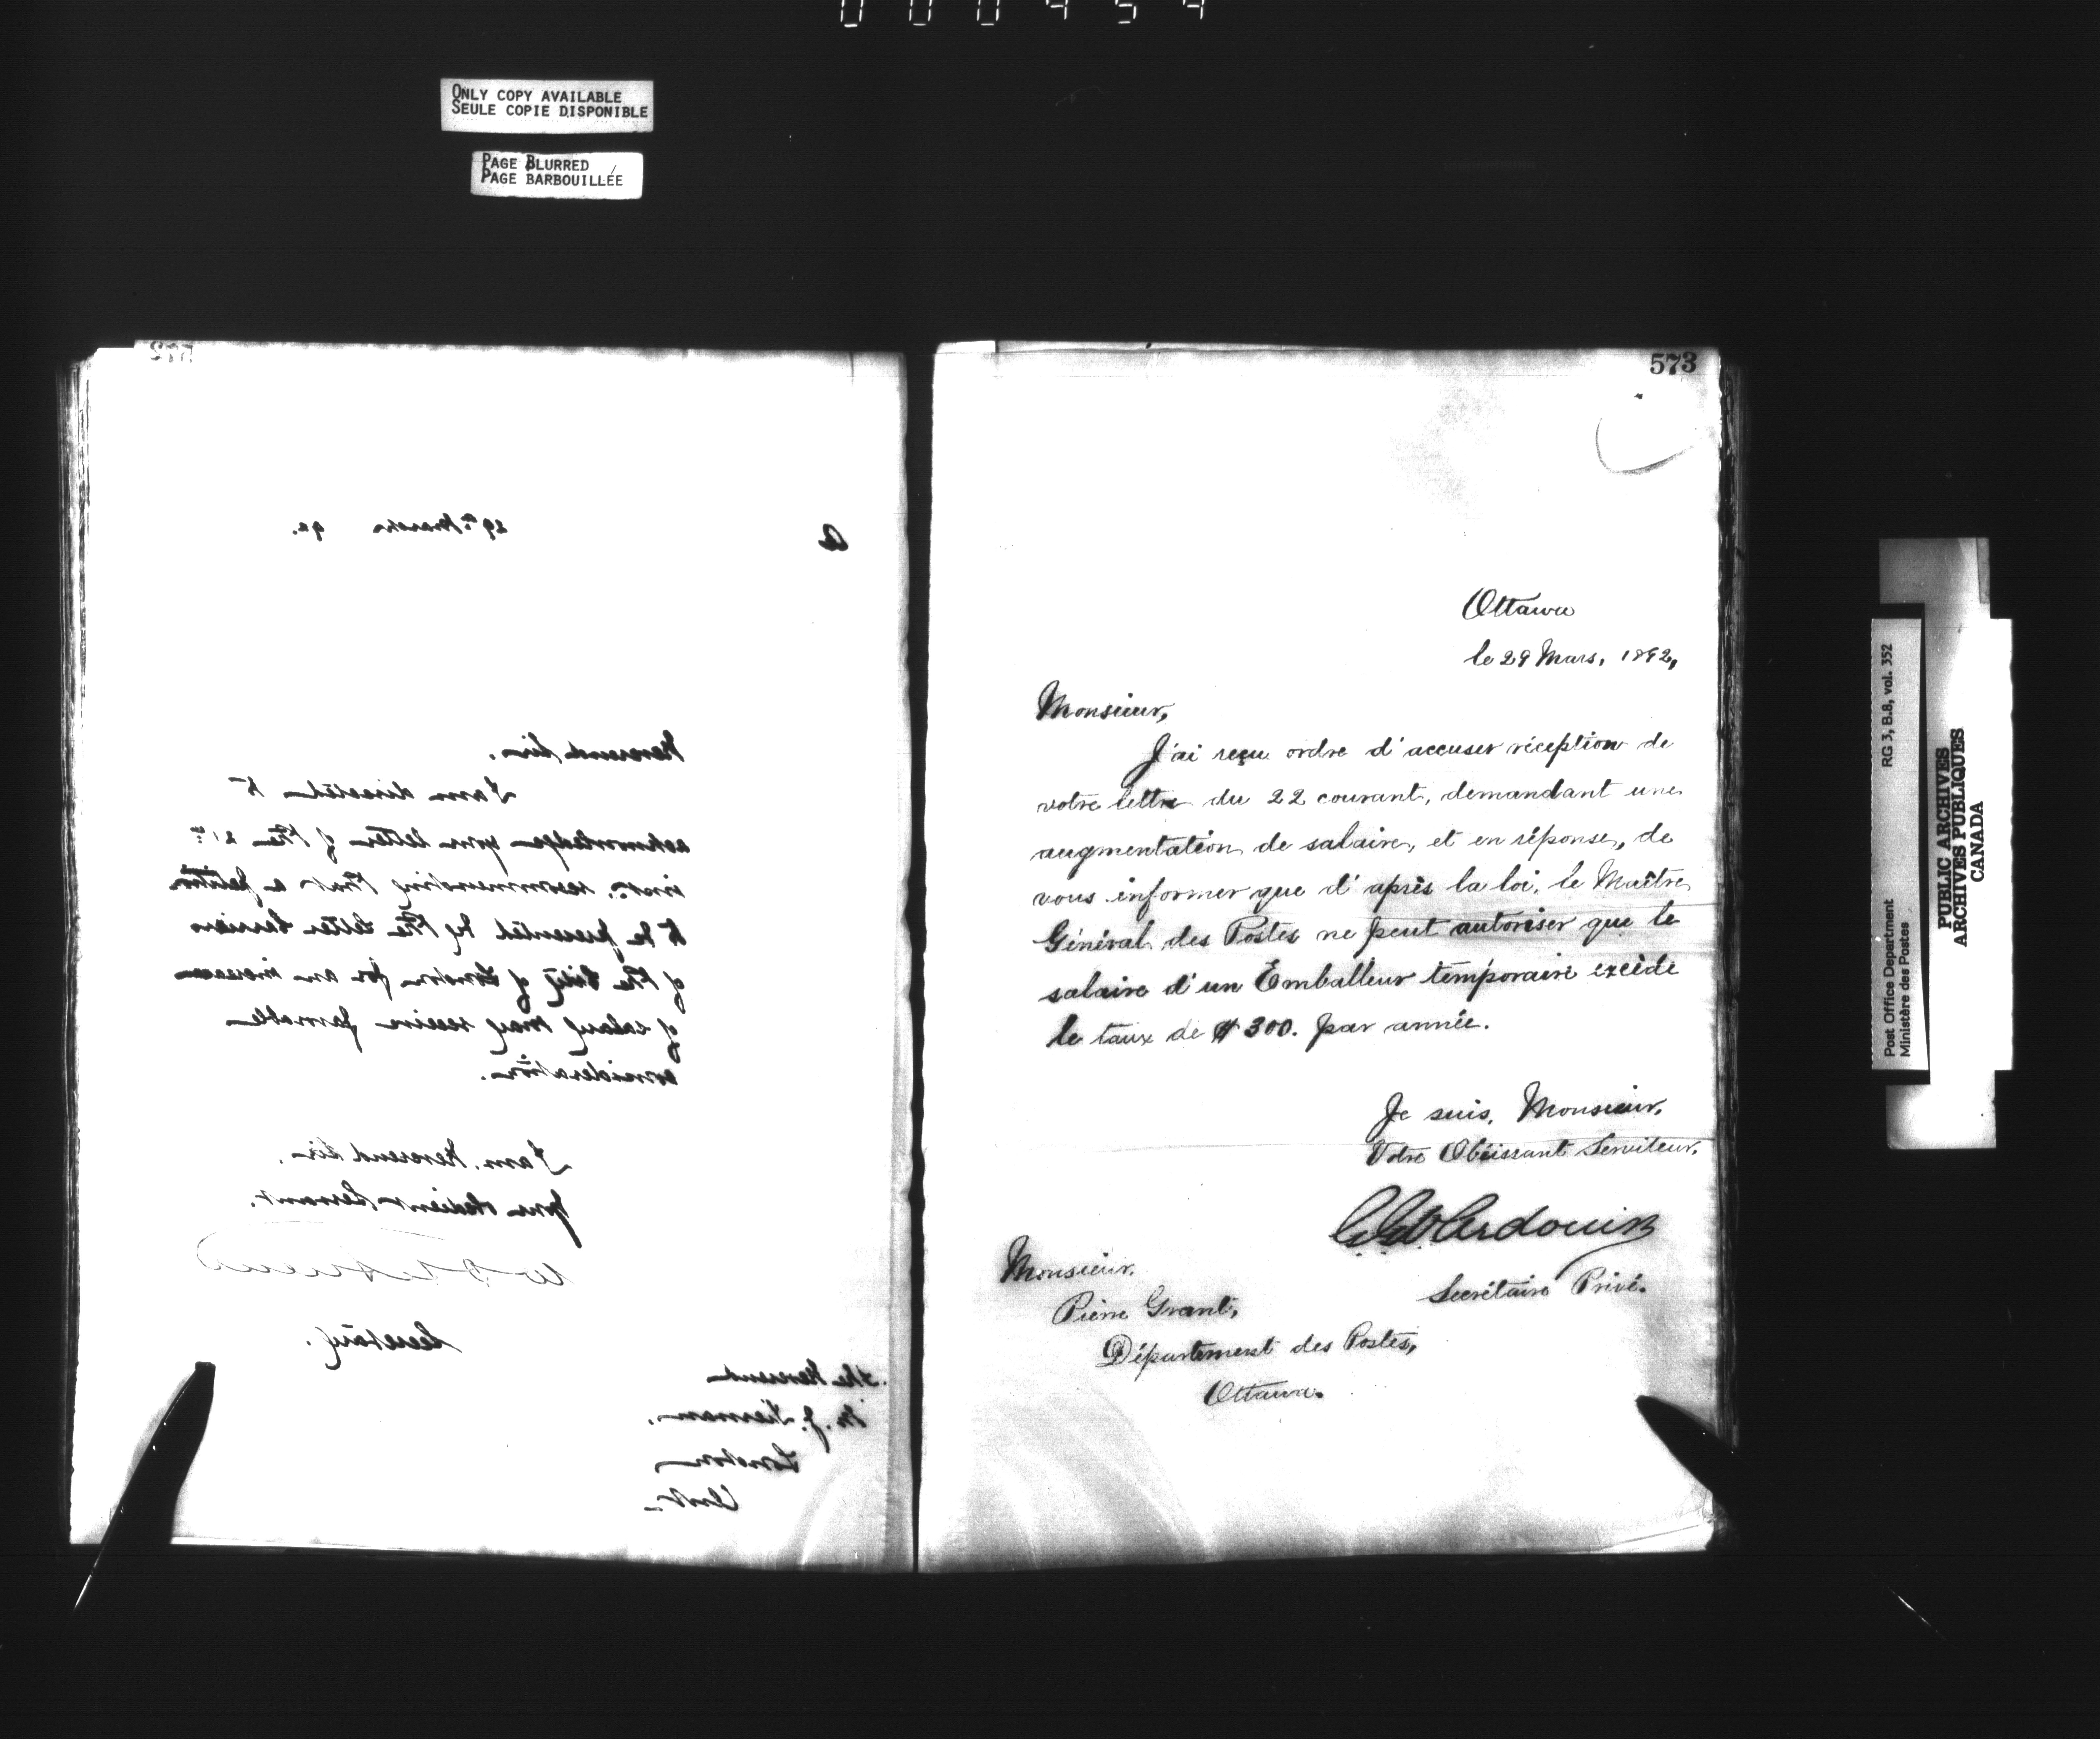 000454
ONLY COPY AVAILABLE
SEULE COPIE DISPONIBLE
PAGE BLURRED
PAGE BARBOUILLÉE
572
29th March 92.
Reverend Sir.
I am directed to
acknowledge your letter of the 21st
inst. recommending that a petition
to be presented by the letter carriers
of the City of London for an increase
of salary may receive favorable
consideration.
I am, Reverend Sir.
Your Obedient Servant.
Secretary.
The Reverend
M. J. Tiernan.
London
Ont.
573
Ottawa
le 29 Mars, 1892,
Monsieur,
J'ai reçu ordre d'accuser réception de
votre lettre du 22 courant, demandant une
augmentation de salaire, et en réponse, de
vous informer que d'après la loi, le Maître
Général des Postes ne peut autoriser que le
salaire d'un Emballeur temporaire excède
le taux de $300. par année.
Je suis, Monsieur,
Votre Obéissant Serviteur,
Verdouin
Secrétaire Privé.
Monsieur.
Pierre Grant,
Département des Postes,
Ottawa.
RG 3, B.8, vol. 352
Post Office Department
Ministère des Postes
PUBLIC ARCHIVES
ARCHIVES PUBLIQUES
CANADA